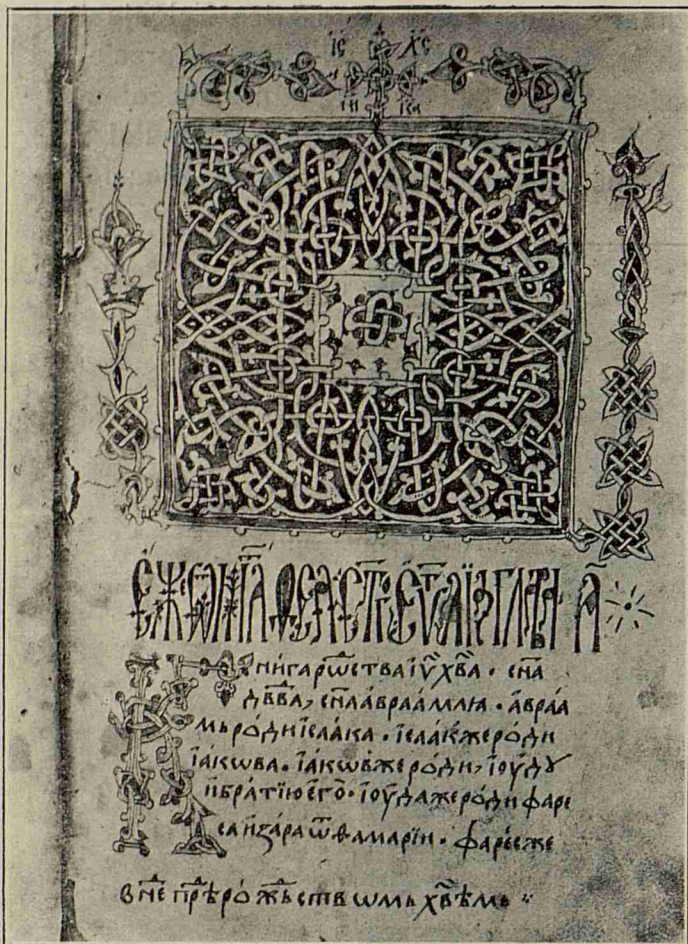 ІС ХС
НИ КА
Е҆ЖЕ ѾМАТѲЕА СТ҃Ое ЕѴАГГЛЇЕ ГЛАВА А҃
Кни́га рⷤ҇ѡства і҆ѵ҃ хв҃а · сн҃а
дв҃да, сн҃а а҆враа́млꙗ · а҆враа́
мь ро́ди і҆саа́ка · і҆саа́к же ро́ди
і҆а́кѡва · і҆а́кѡв же роди, і҆оу́дꙋ
и҆ бра́тїю є҆го̀ · і҆оу́да же ро́ди фаре
са и҆ за́ра ѿ ѳамари҄и · фаре́с же
в не прⷣѣ ро́жⷣьствѡмь хв҃ѣмь ·: